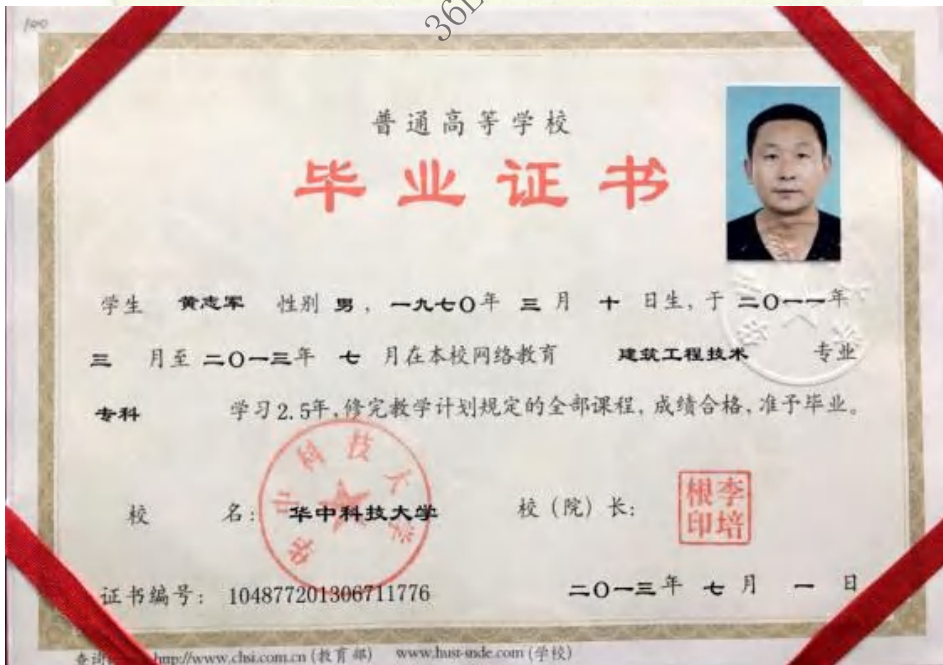 100
普通高等学校
毕业证书
学生 黄志军 性别 男，一九七〇年 三 月 十 日生，于 二〇一一年
三 月至 二〇一三年 七 月在本校网络教育 建筑工程技术 专业
专科 学习2.5年，修完教学计划规定的全部课程，成绩合格，准予毕业。
华中科技大学
校 名：华中科技大学 校（院）长：
李培根印
证书编号：104877201306711776 二〇一三年 七 月 一 日
http://www.chsi.com.cn (教育部) www.hust-snde.com (学校)